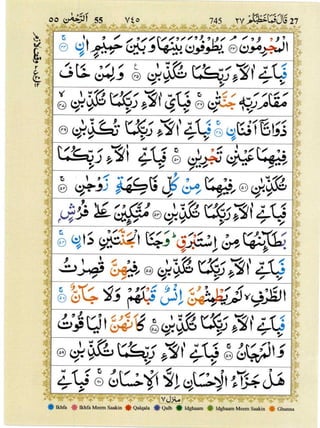 ٥٥ اَلرَّحْمٰن 55 ٧٤٥ 745 ٢٧ قَالَ فَمَا خَطْبُكُمْ 27
الْمُجْرِمُوْنَ ﴿٤٣﴾ يَطُوْفُوْنَ بَيْنَهَا وَبَيْنَ حَمِيْمٍ اٰنٍ ﴿٤٤﴾
فَبِاَيِّ اٰلَآءِ رَبِّكُمَا تُكَذِّبٰنِ ﴿٤٥﴾ وَلِمَنْ خَافَ
مَقَامَ رَبِّهٖ جَنَّتٰنِ ﴿٤٦﴾ فَبِاَيِّ اٰلَآءِ رَبِّكُمَا تُكَذِّبٰنِ ﴿٤٧﴾
ذَوَاتَآ اَفْنَانٍ ﴿٤٨﴾ فَبِاَيِّ اٰلَآءِ رَبِّكُمَا تُكَذِّبٰنِ ﴿٤٩﴾
فِيْهِمَا عَيْنٰنِ تَجْرِيٰنِ ﴿٥٠﴾ فَبِاَيِّ اٰلَآءِ رَبِّكُمَا
تُكَذِّبٰنِ ﴿٥١﴾ فِيْهِمَا مِنْ كُلِّ فَاكِهَةٍ زَوْجٰنِ ﴿٥٢﴾
فَبِاَيِّ اٰلَآءِ رَبِّكُمَا تُكَذِّبٰنِ ﴿٥٣﴾ مُتَّكِـِٕيْنَ عَلٰى فُرُشٍ
بَطَآئِنُهَا مِنْ اِسْتَبْرَقٍ ؕ وَجَنَا الْجَنَّتَيْنِ دَانٍ ﴿٥٤﴾
فَبِاَيِّ اٰلَآءِ رَبِّكُمَا تُكَذِّبٰنِ ﴿٥٥﴾ فِيْهِنَّ قٰصِرٰتُ
الطَّرْفِ ۙ لَمْ يَطْمِثْهُنَّ اِنْسٌ قَبْلَهُمْ وَلَا جَآنٌّ ﴿٥٦﴾
فَبِاَيِّ اٰلَآءِ رَبِّكُمَا تُكَذِّبٰنِ ﴿٥٧﴾ كَاَنَّهُنَّ الْيَاقُوْتُ
وَالْمَرْجَانُ ﴿٥٨﴾ فَبِاَيِّ اٰلَآءِ رَبِّكُمَا تُكَذِّبٰنِ ﴿٥٩﴾
هَلْ جَزَآءُ الْاِحْسَانِ اِلَّا الْاِحْسَانُ ﴿٦٠﴾ فَبِاَيِّ
منزل ٧
Ikhfa Ikhfa Meem Saakin Qalqala Qalb Idghaam Idghaam Meem Saakin Ghunna